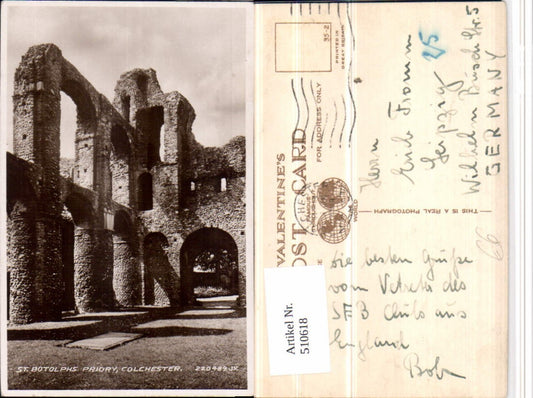 ST. BOTOLPHS PRIORY, COLCHESTER. 220489 JV.
VALENTINE'S
POST CARD
FOR ADDRESS ONLY
35-2
PRINTED IN
GREAT BRITAIN
THIS IS A REAL PHOTOGRAPH
Herrn
Erich Fromm
Leipzig
Wilhelm Busch Str. 5
GERMANY
25
66
die besten Grüße
vom des
aus
England
Bob
Artikel Nr.
510618